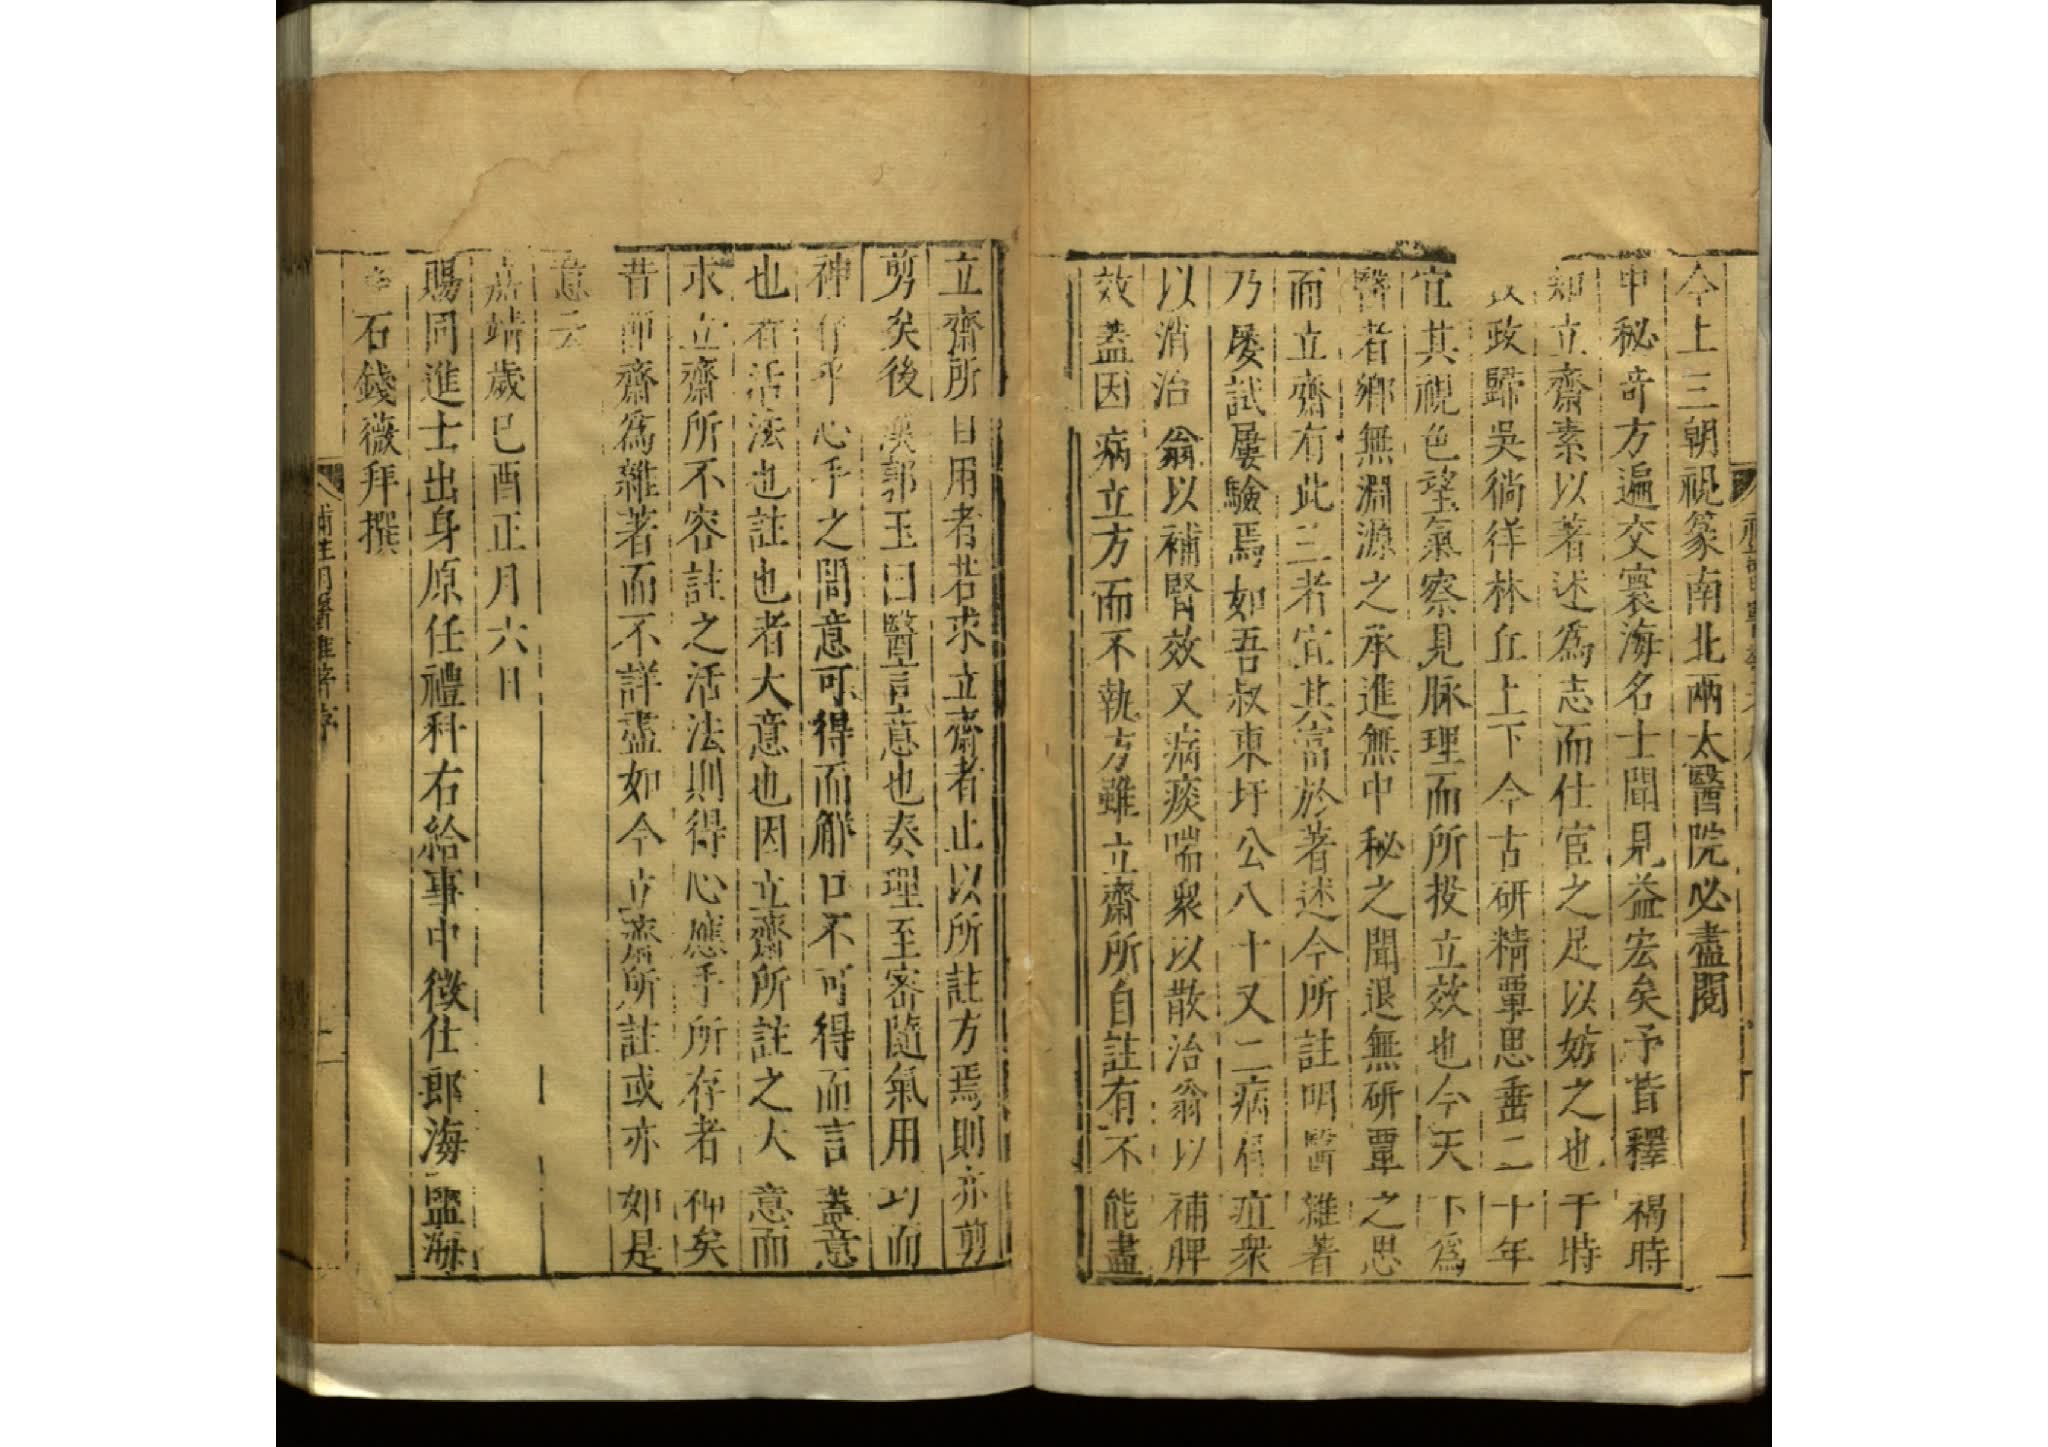 今上三朝視篆南北兩太醫院必盡閱
中秘奇方遍交寰海名士聞見益宏矣予昔釋褐時
知立齋素以著述爲志而仕宦之足以妨之也于時
政歸吳徜徉林丘上下今古研精覃思垂二十年
宜其視色望氣察見脉理而所投立效也今天下爲
醫者鄉無淵源之承進無中秘之聞退無研覃之思
而立齋有此三者宜其富於著述今所註明醫雜著
乃屡試屢驗焉如吾叔東圩公八十又二病肩疽衆
以消治翁以補腎效又病痰喘衆以散治翁以補脾
效蓋因病立方而不執方雖立齋所自註有不能盡
立齋所日用者若求立齋者止以所註方焉則亦剪
剪矣後漢郭玉曰醫言意也奏理至密隨氣用巧而
神存乎心手之間意可得而解口不可得而言蓋意
也者活法也註也者大意也因立齋所註之大意而
求立齋所不容註之活法則得心應手所存者神矣
昔節齋爲雜著而不詳盡如今立齋所註或亦如是
意云
嘉靖歲己酉正月六日
賜同進士出身原任禮科右給事中徵仕郎海鹽海
石錢薇拜撰
補註明醫雜著序